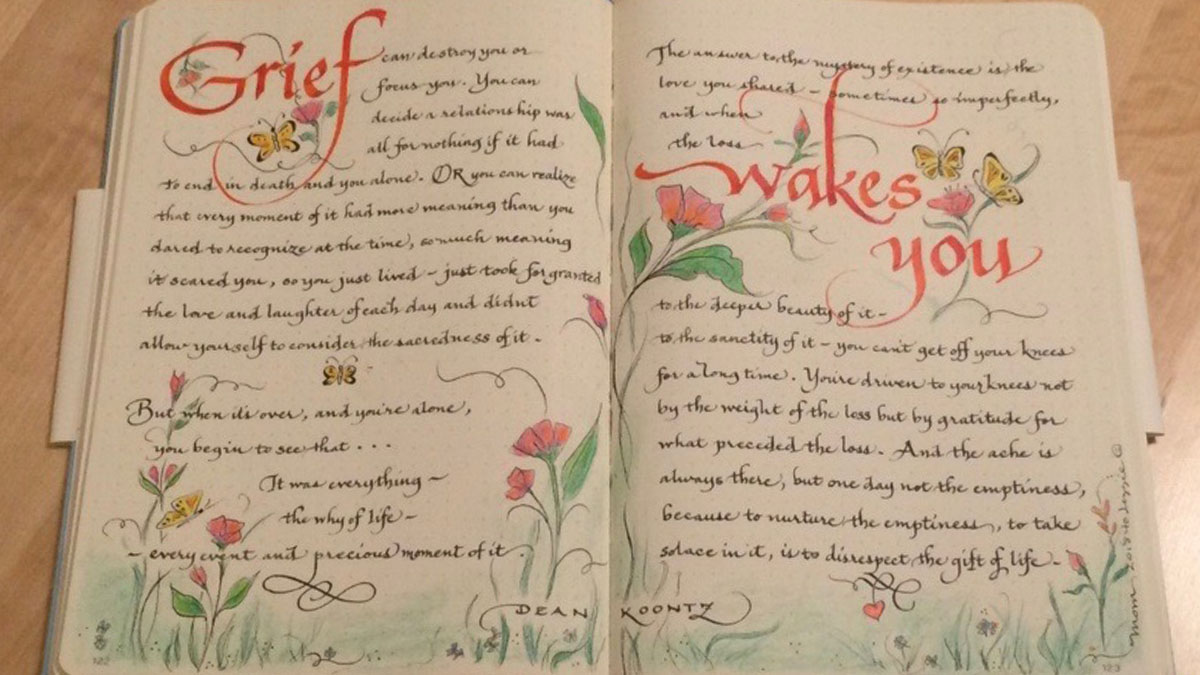 Grief can destroy you or
focus you. You can
decide a relationship was
all for nothing if it had
to end in death and you alone. OR you can realize
that every moment of it had more meaning than you
dared to recognize at the time, so much meaning
it scared you, so you just lived – just took for granted
the love and laughter of each day and didnt
allow yourself to consider the sacredness of it –
But when it's over, and you're alone,
you begin to see that . . .
It was everything –
the why of life –
– every event and precious moment of it .
DEAN KOONTZ
122
The answer to the mystery of existence is the
love you shared – sometimes so imperfectly,
and when
the loss
wakes
you
to the deeper beauty of it –
to the sanctity of it – you can't get off your knees
for a long time. You're driven to your knees not
by the weight of the loss but by gratitude for
what preceded the loss. And the ache is
always there, but one day not the emptiness,
because to nurture the emptiness, to take
solace in it, is to disrespect the gift of life –
mom 2018 to Lizzie ©
123